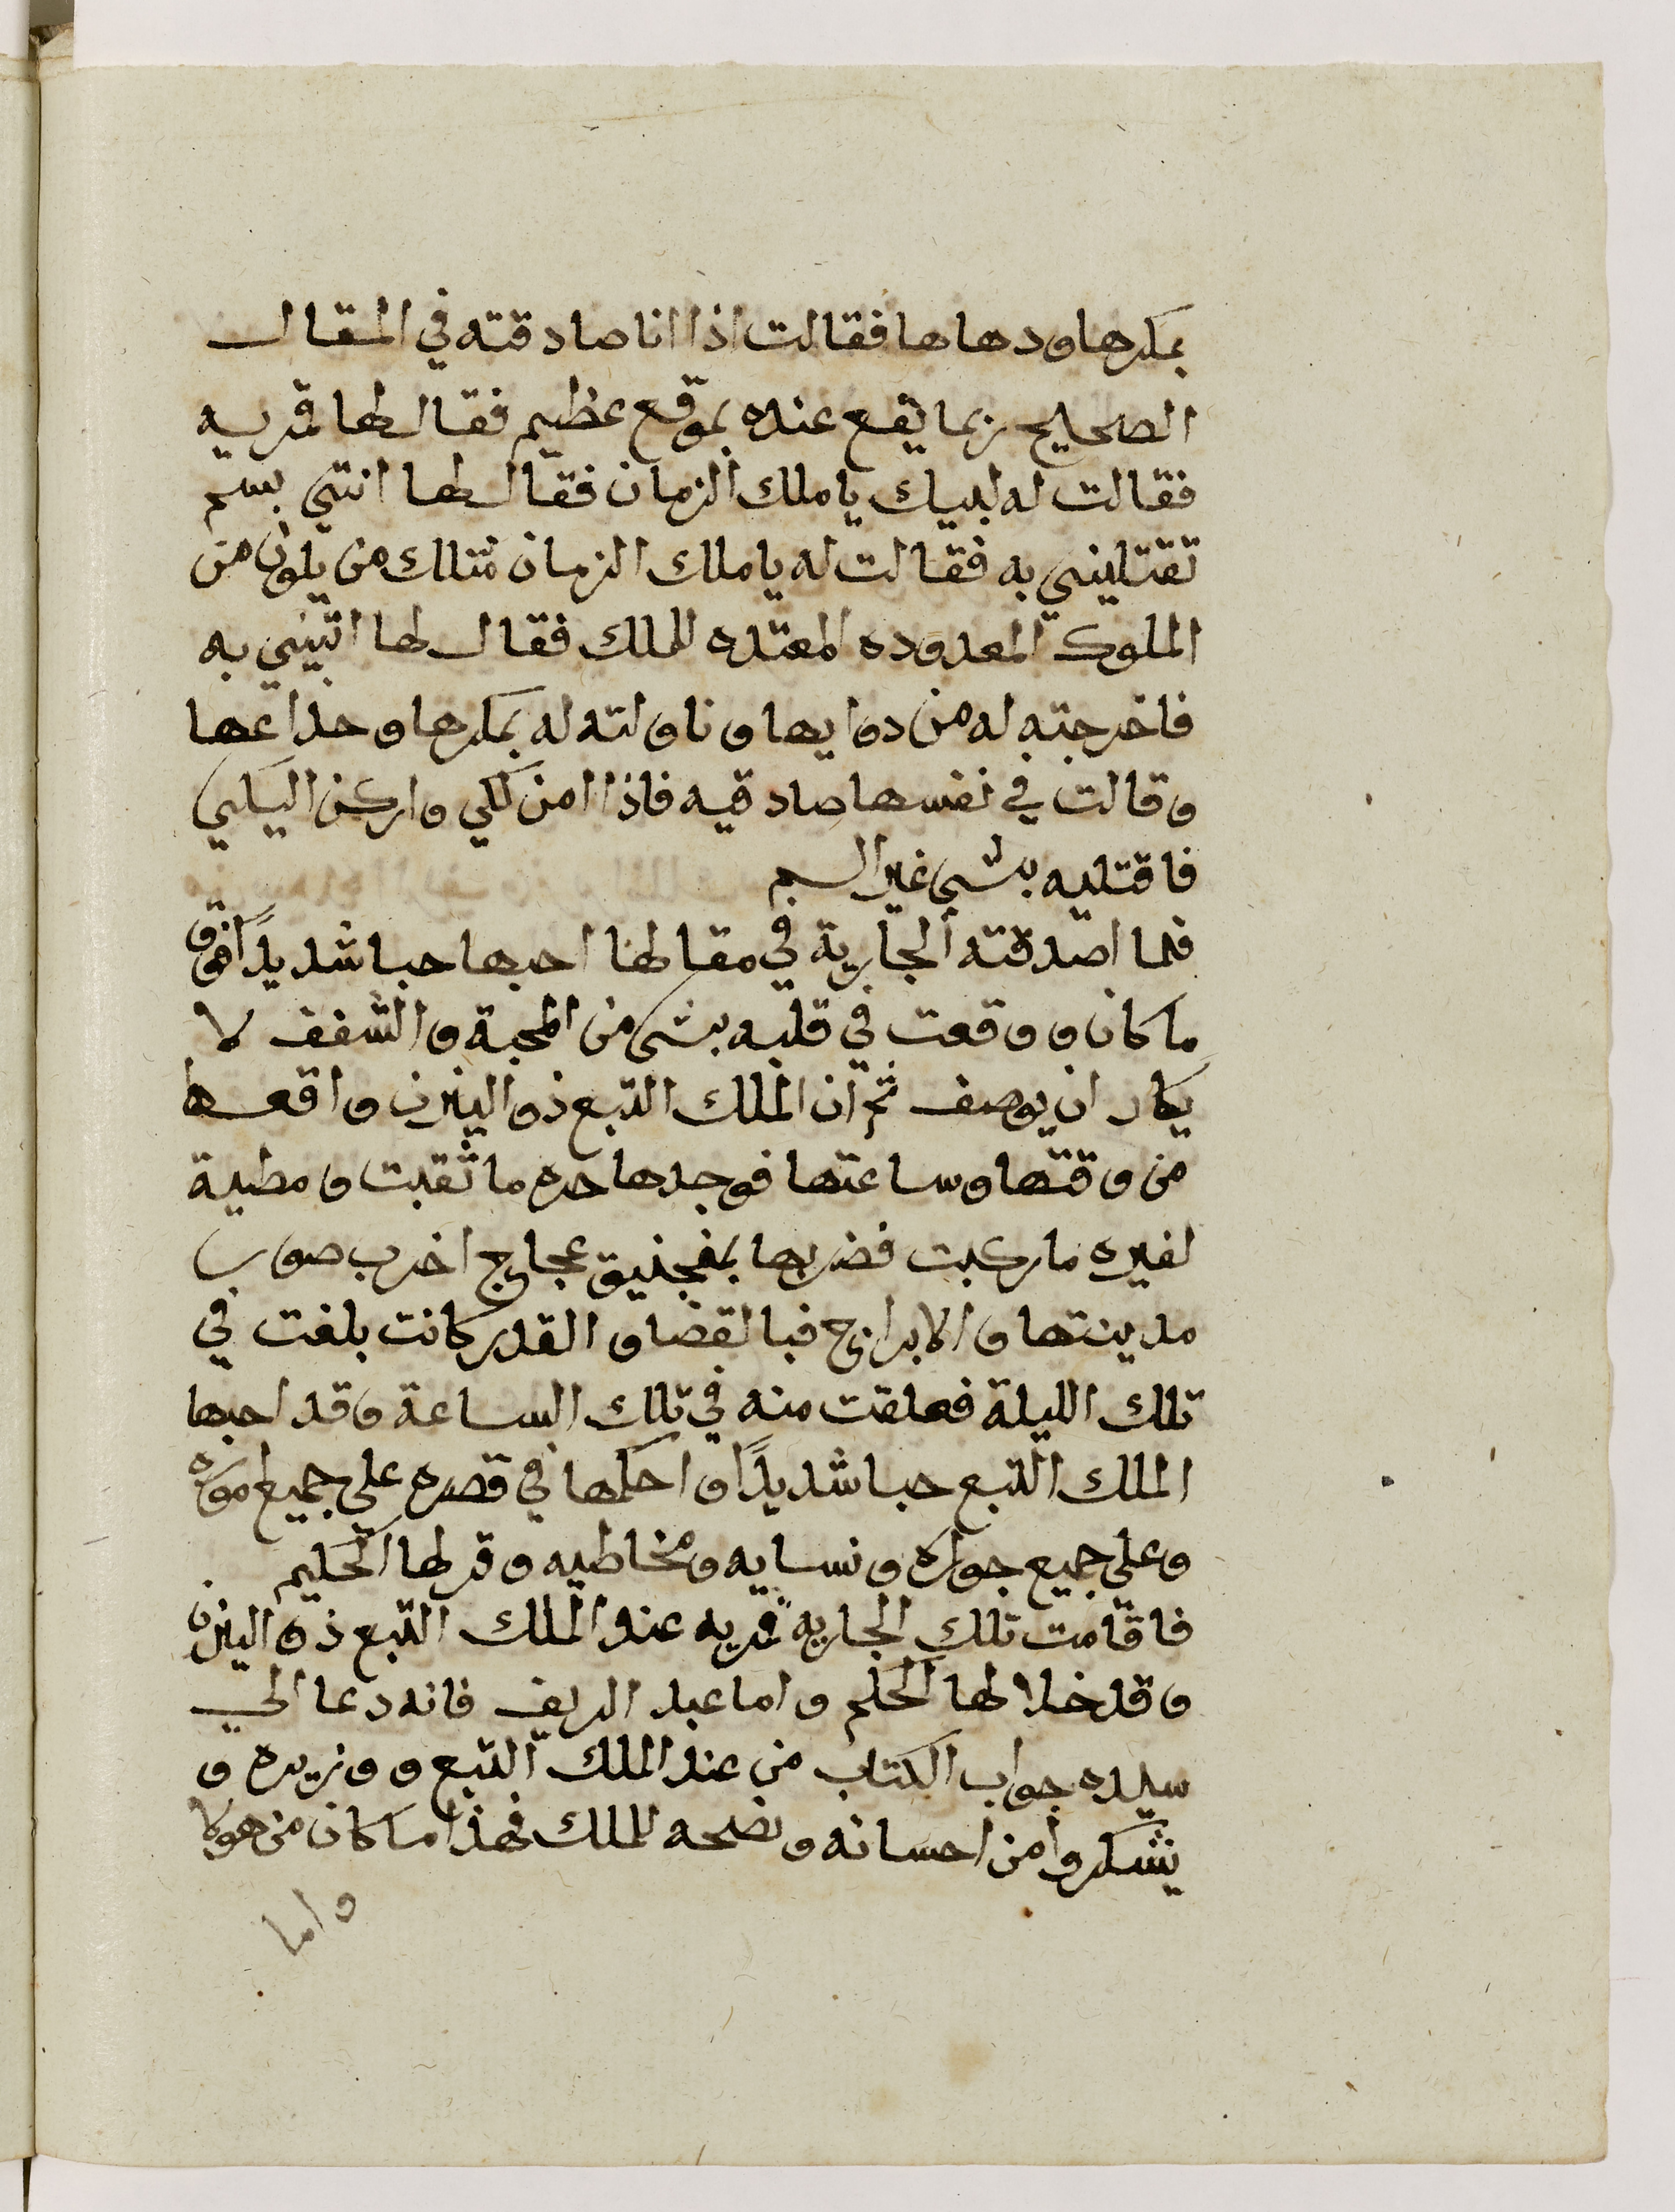 بمكرها ودهاها فقالت اذا انا صادقته في المقال
الصحيح ربما يقع عنده بموقع عظيم فقال لها قمريه
فقالت له لبيك يا ملك الزمان فقال لها انتي بسم
تقتليني به فقالت له يا ملك الزمان مثلك من يكون من
الملوك المعدوده المعتده للملك فقال لها اتيني به
فاخرجته له من دوايها وناولته له بمكرها وخداعها
وقالت في نفسها صادقيه فاذا امن لكي واركن اليكي
فاقتليه بشي غير السم
فلما اصدقته الجارية في مقالها احبها حبا شديدًا فوق
ما كان ووقعت في قلبه بشي من المحبة والشغف لا
يكاد ان يوصف ثم ان الملك التبع ذو اليزن واقعها
من وقتها وساعتها فوجدها دره ما ثقبت ومطية
لغيره ما ركبت فضربها بمنجنيق عجاج اخرب صوار
مدينتها والابراج فبالقضا والقدر كانت بلغت في
تلك الليلة فعلقت منه في تلك الساعة وقد احبها
الملك التبع حبا شديدًا واحكمها في قصره علي جميع اموره
وعلي جميع جواره ونسايه ومخاطيه وقر لها الحليم
فاقامت تلك الجاريه قمريه عند الملك التبع ذو اليزن
وقد خلا لها الحكم واما عبد الريف فانه دعا الي
سيده جواب الكتاب من عند الملك التبع ووزيره و
يشكروا من احسانه ونصحه للملك فهذا ما كان من هولا
واما